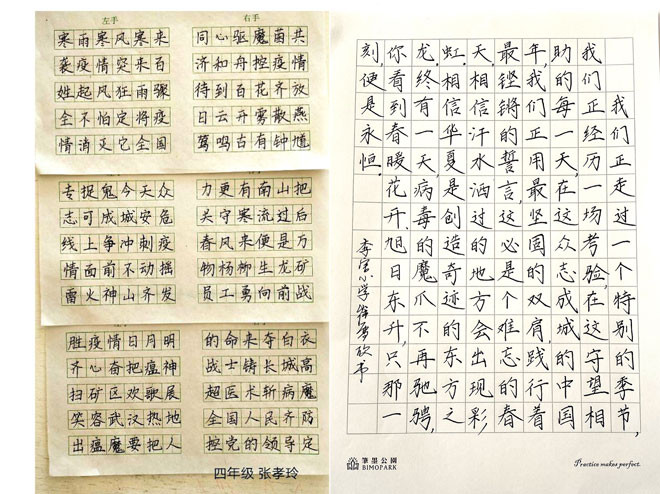 左手
寒雨寒风寒来
袭疫情突来百
姓起风狂雨骤
全不怕定将疫
情消灭它全国
右手
同心驱魔菌共
济和舟控疫情
待到百花齐放
日云开雾散燕
莺鸣古有钟馗
专捉鬼今天众
志可成城安危
线上争冲刺疫
情面前不动摇
雷火神山齐发
力更有南山把
关守寒流过后
春风来便是方
物杨柳生龙矿
员工勇向前战
左手
胜疫情日月明
齐心奋把瘟神
扫矿区欢歌展
笑容武汉热地
出瘟魔要把人
右手
的命来夺白衣
战士铸长城高
超医术斩病魔
全国人民齐防
控党的领导定
四年级 张孝玲
我们正走过一个特别的季节,
我们正经历一场考验,在这守望相
助的每一天,在这众志成城的中国
年,我们正用最坚国的双肩,践行着
最铿锵的誓言,这必是个难忘的春
天,相信汗水洒过的地方会出现彩
虹,相信华夏是创造奇迹的东方之
龙,终有一天,病毒的魔爪不再驰骋,
你看到春暖花开,旭日东升,只那一
刻,便是永恒.
小学徐 欣书
筆墨公園
BIMOPARK
Practice makes perfect.